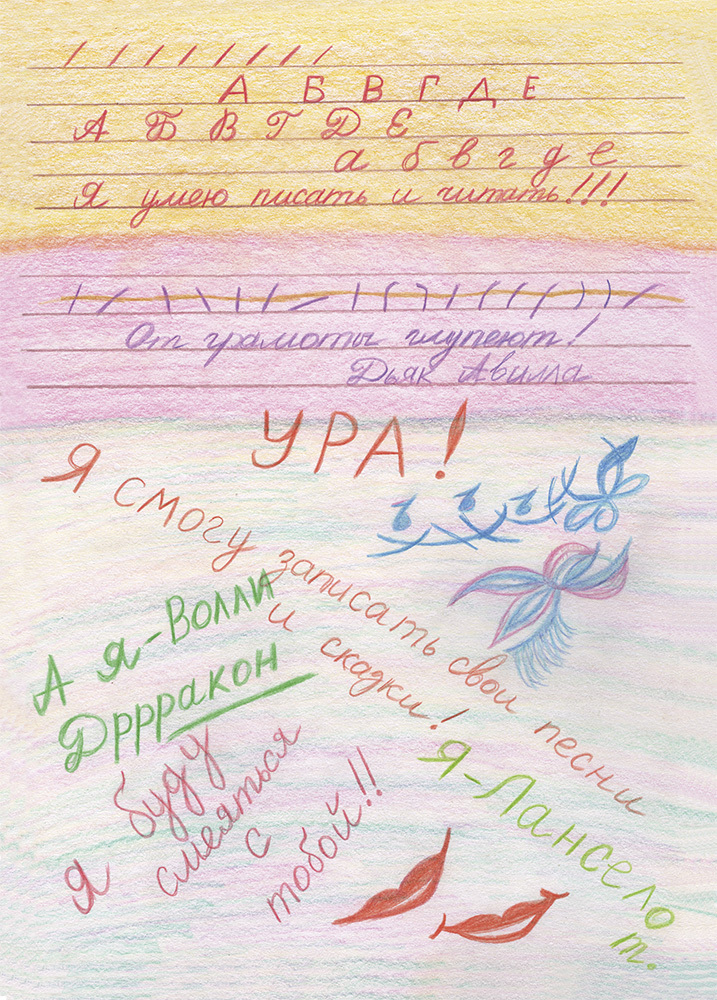 А Б В Г Д Е
А Б В Г Д Е
а б в г д е
Я умею писать и читать!!!
От грамоты глупеют!
Дьяк Авилла
УРА!
Я смогу записать свои песни
и сказки!
А я-Волли
Дррракон
Я буду
смеяться
с
тобой!!
Я-Ланселот.